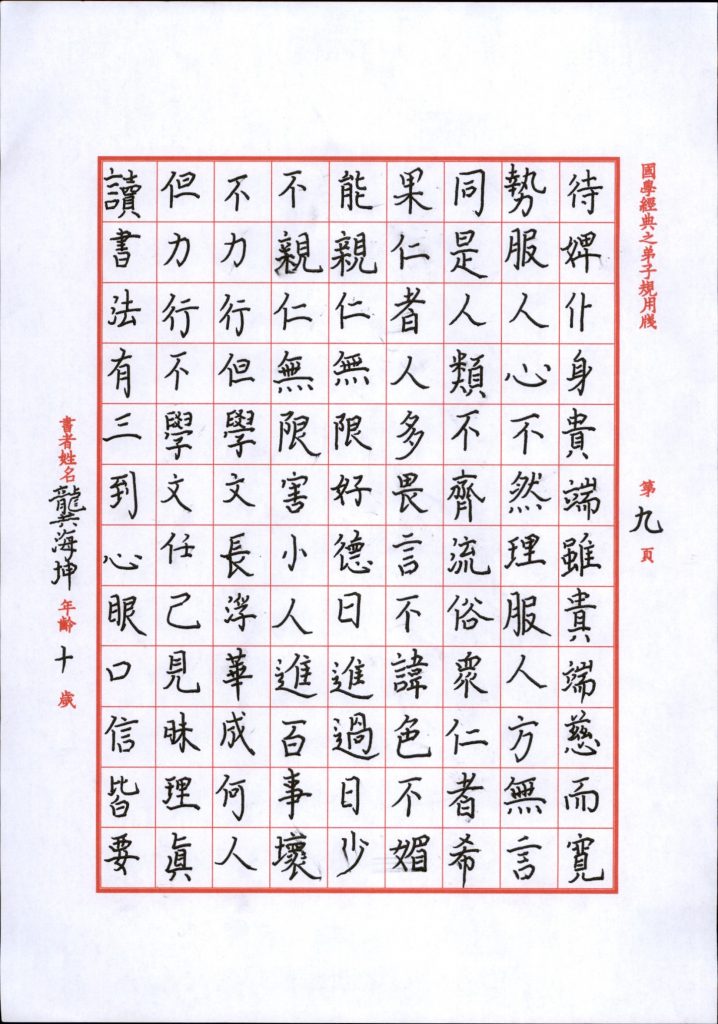 國學經典之弟子規用牋
第九頁
待婢仆身貴端雖貴端慈而寬
勢服人心不然理服人方無言
同是人類不齊流俗衆仁者希
果仁者人多畏言不諱色不媚
能親仁無限好德日進過日少
不親仁無限害小人進百事壞
不力行但學文長浮華成何人
但力行不學文任己見昧理眞
讀書法有三到心眼口信皆要
書者姓名龔海坤年齡十歲